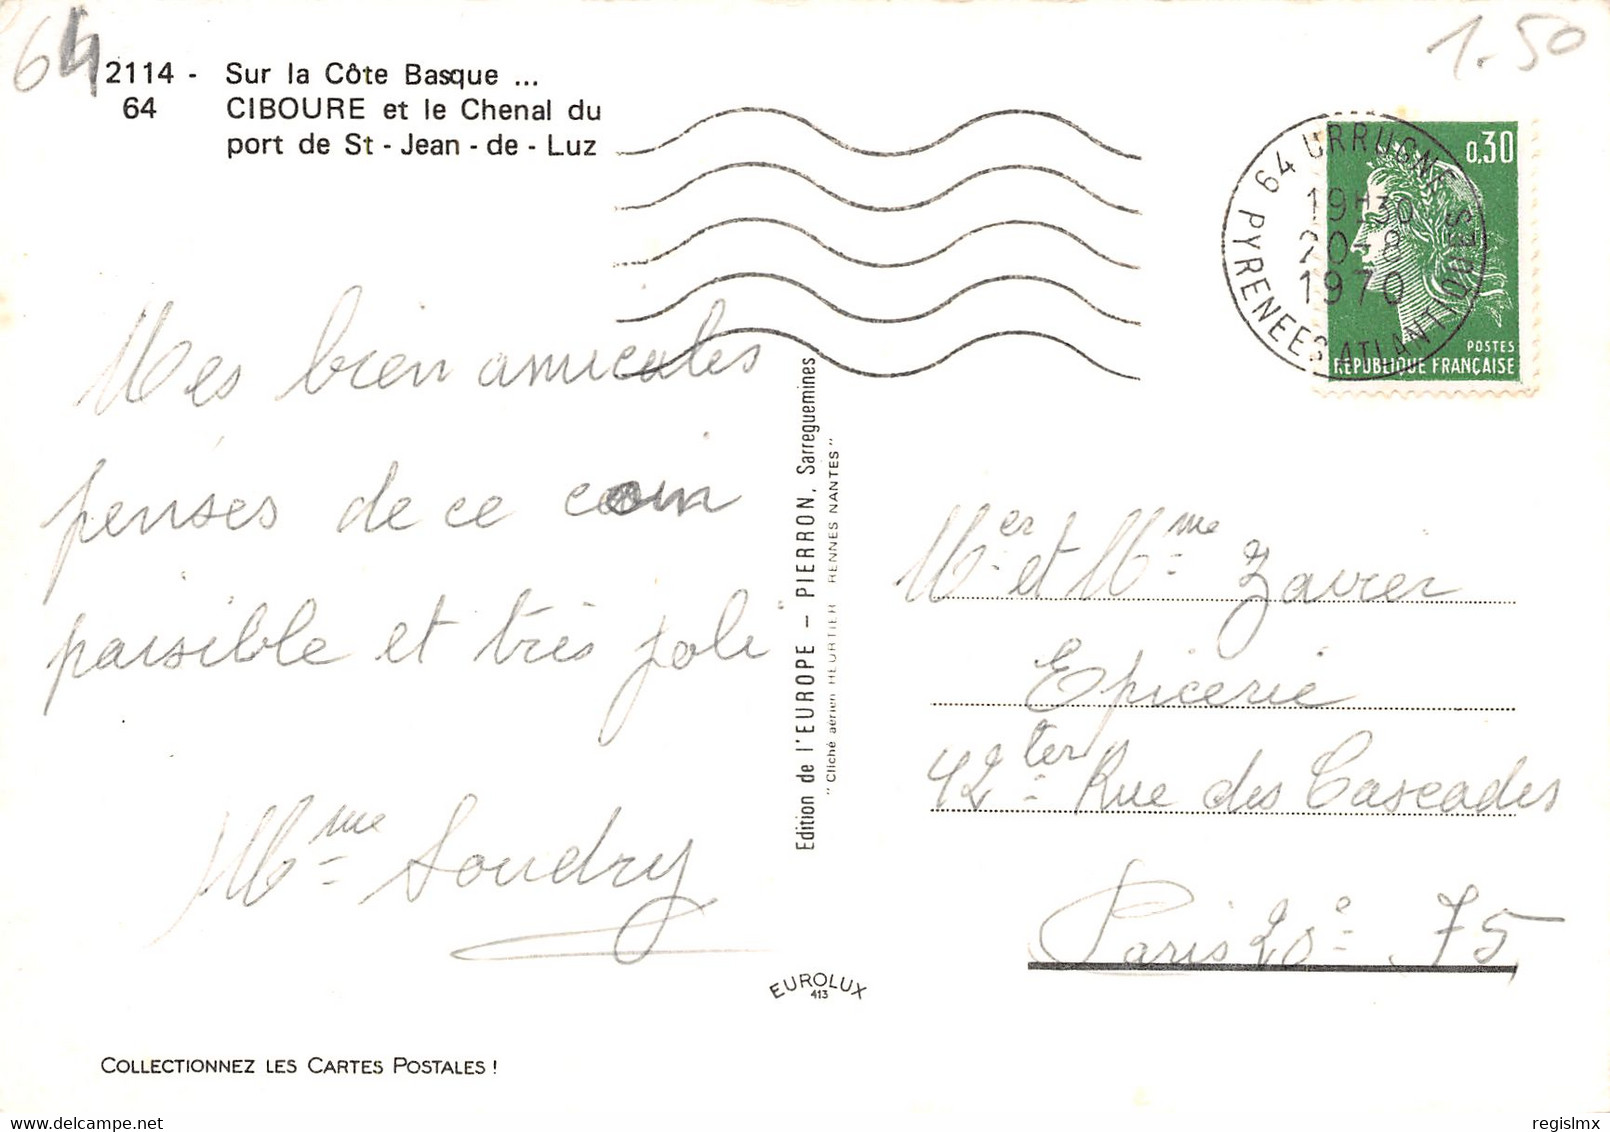 64
1.50
2114 - Sur la Côte Basque ...
64 CIBOURE et le Chenal du
port de St - Jean - de - Luz
64 URRUGNE PYRENEES ATLANTIQUES
19H30
20-8
1970
0,30
POSTES
REPUBLIQUE FRANÇAISE
Mes bien amicales
penses de ce coin
paisible et très joli
Mme Soudry
Edition de l'EUROPE - PIERRON, Sarreguemines
"Cliché aérien HEURTIER RENNES NANTES"
Mer et Mme Zavier
Epicerie
42ter Rue des Cascades
Paris 20e 75
EUROLUX
413
COLLECTIONNEZ LES CARTES POSTALES !
delcampe.net
regislmx